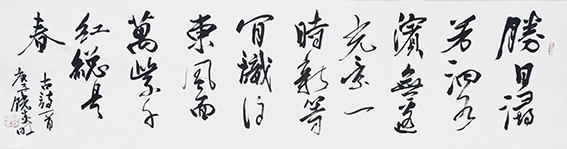 勝日尋
芳泗水
濱無邊
光景一
時新等
閒識得
東風面
萬紫千
紅總是
春
古詩一首
庚子